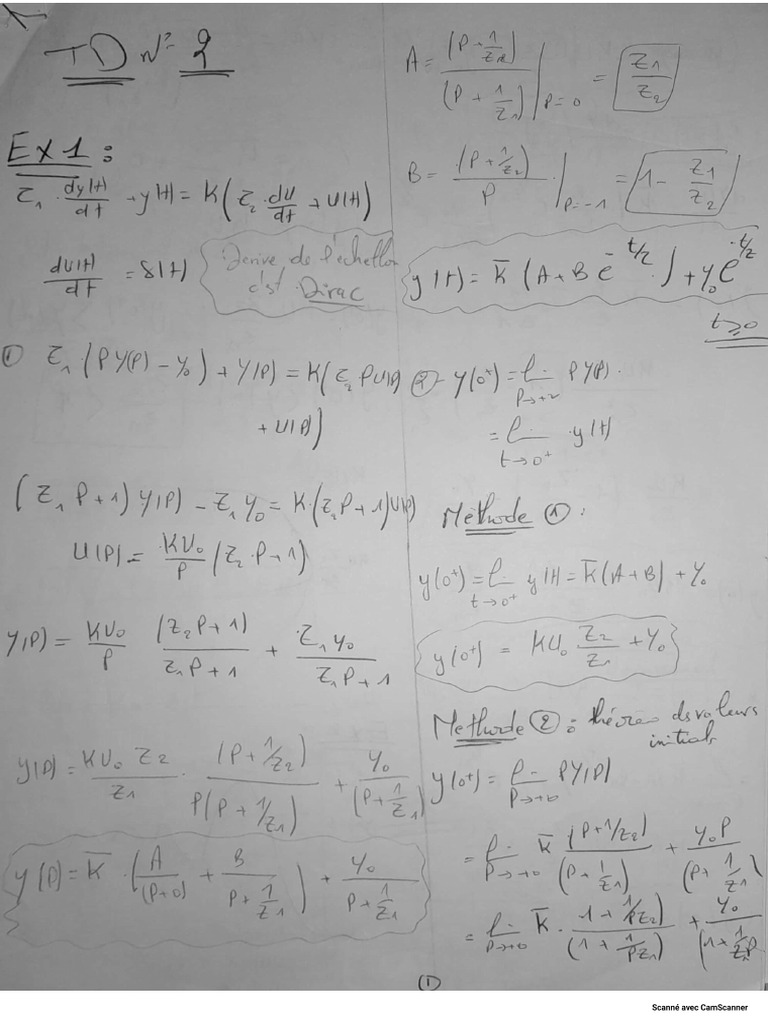 TD N° 2
EX1:
Z₁ · dy(t)/dt + y(t) = K(Z₂ · du/dt + U(t))
dU(t)/dt = δ(t)
Derive de l'echellon
c'est Dirac
① Z₁ · (PY(P) - y₀) + Y(P) = K(Z₂ P U(P)
+ U(P))
(Z₁P + 1) Y(P) - Z₁y₀ = K · (Z₂P + 1)U(P)
U(P) = KU₀/P (Z₂ · P + 1)
Y(P) = KU₀/P (Z₂P + 1)/(Z₁P + 1) + Z₁y₀/(Z₁P + 1)
Y(P) = KU₀Z₂/Z₁ · (P + 1/Z₂)/(P(P + 1/Z₁)) + Y₀/(P + 1/Z₁)
Y(P) = K̅ · (A/(P+0) + B/(P + 1/Z₁)) + Y₀/(P + 1/Z₁)
A = (P + 1/Z₂)/(P + 1/Z₁) |P=0 = Z₁/Z₂
B = (P + 1/Z₂)/P · |P=-1 = 1 - Z₁/Z₂
y(t) = K̅ (A + B e^-t/Z) + y₀ e^-t/Z
t ≥ 0
②- y(0⁺) = li P→+∞ PY(P) ·
= li t→0⁺ · y(t)
Méthode ① :
y(0⁺) = li t→0⁺ y(t) = K̅(A + B) + Y₀
y(0⁺) = KU₀ Z₂/Z₁ + Y₀
Methode ② : théorème ds valeurs
initials
y(0⁺) = li P→+∞ PY(P)
= li P→+∞ K̅ (P + 1/Z₂)/(P + 1/Z₁) + Y₀P/(P + 1/Z₁)
= li P→+∞ K̅ · (1 + 1/PZ₂)/(1 + 1/PZ₁) + Y₀/(1 + 1/Z₁P)
(1)
Scanné avec CamScanner